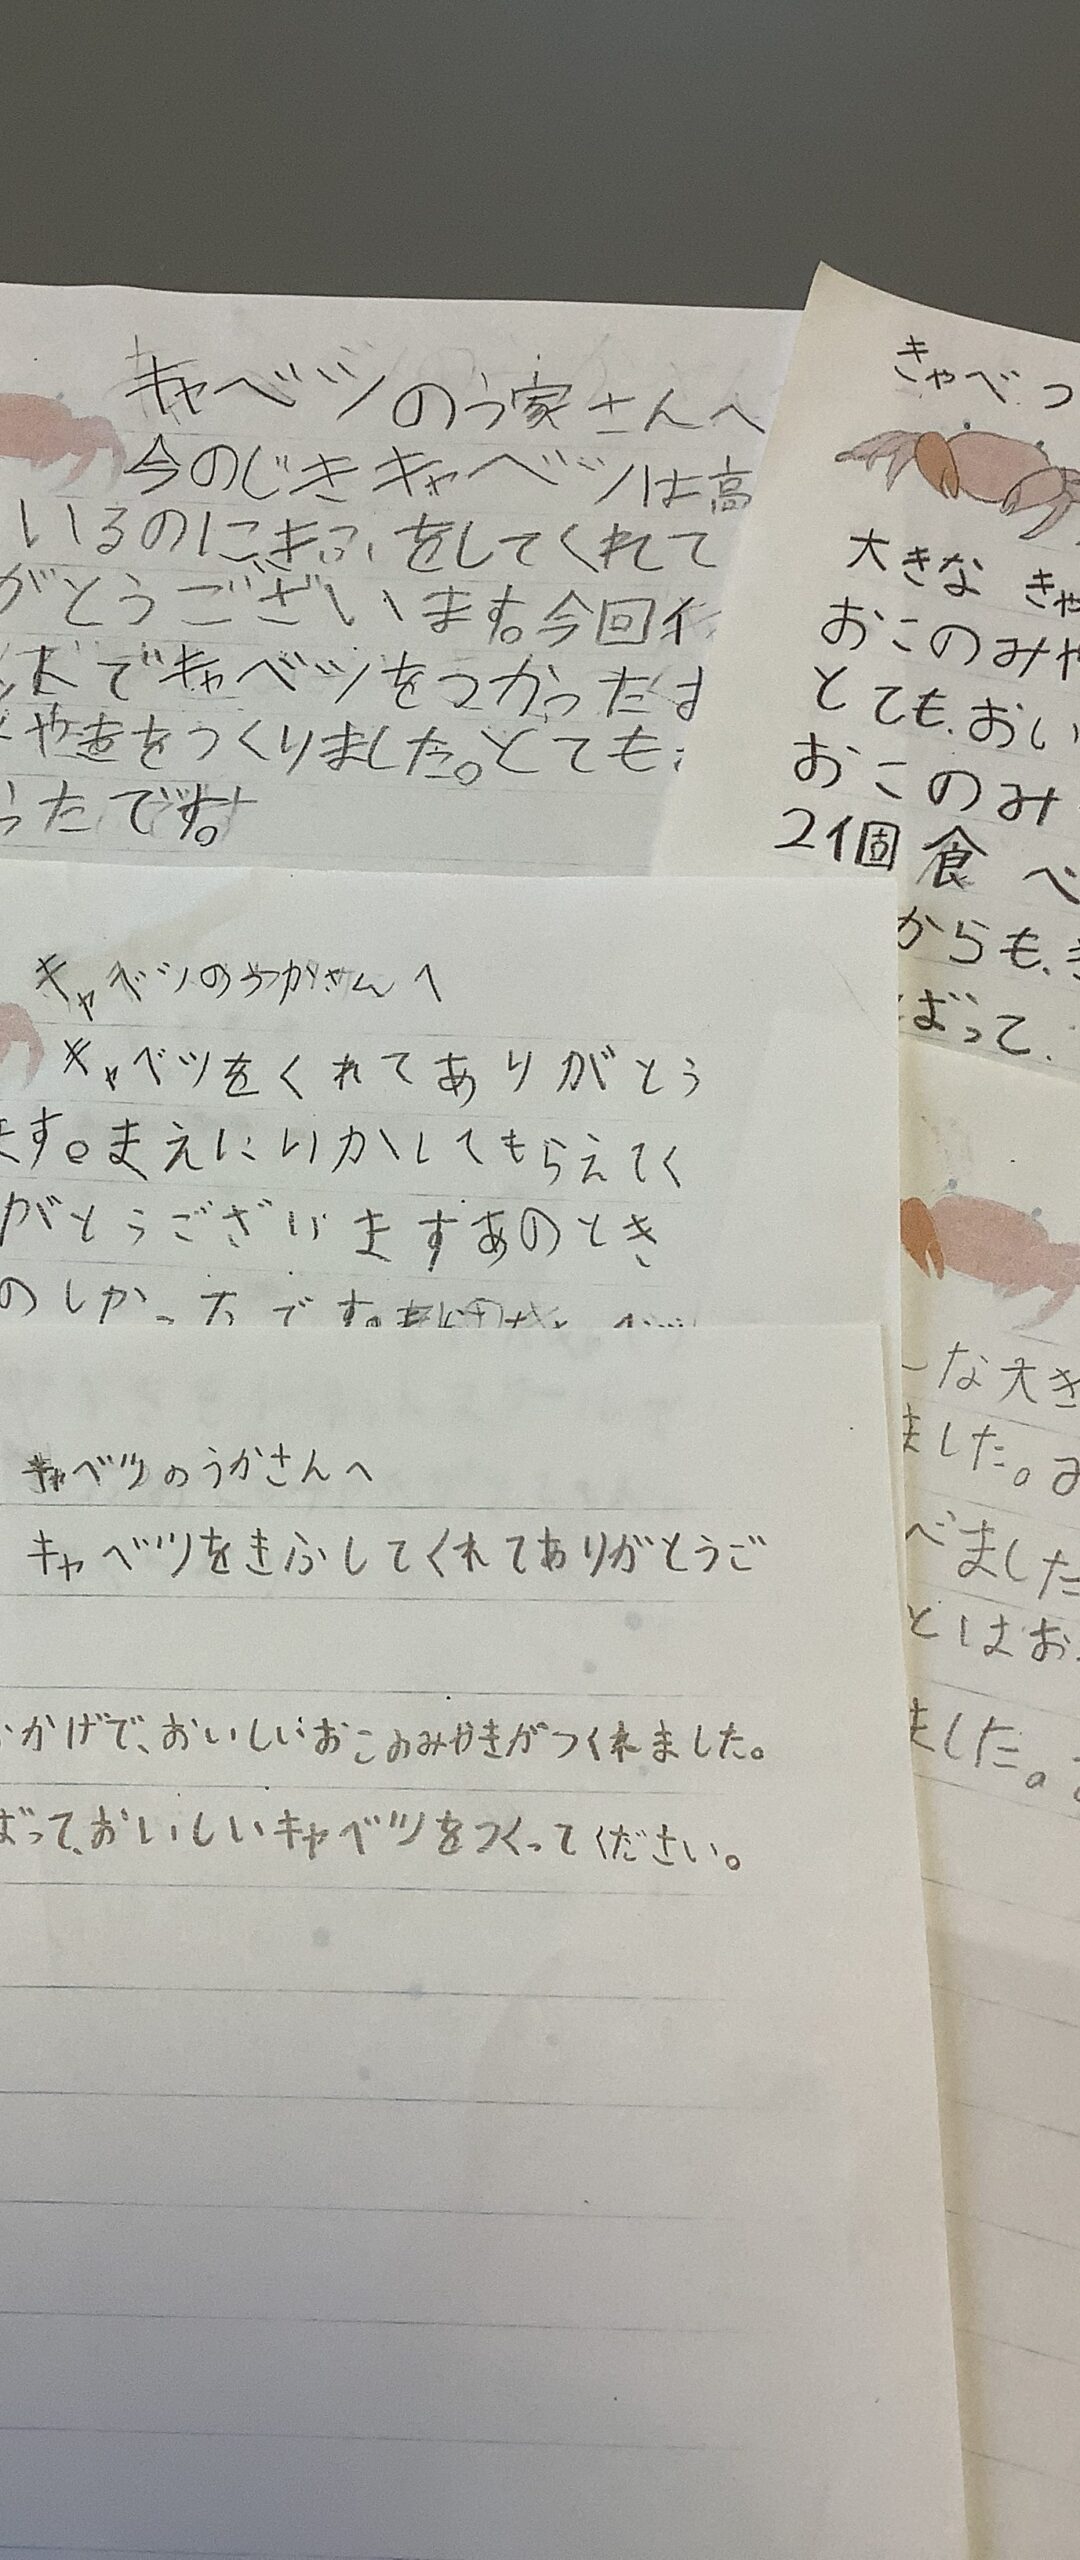 キャベツのう家さんへ
今のじきキャベツは高
いるのにきふをしてくれて
がとうございます。今回
でキャベツをつかったお
やきをつくりました。とても
ったです。
きゃべつ
大きなきゃ
おこのみや
とても、おい
おこのみ
2個食べ
からも、
ばって、
キャベツのうかさんへ
キャベツをくれてありがとう
ます。まえにいかしてもらえてく
がとうございますあのとき
のしかったです。
キャベツのうかさんへ
キャベツをきふしてくれてありがとうご
かげで、おいしいおこのみやきがつくれました。
ばって、おいしいキャベツをつくってください。
な大き
ました。
べました
とはお
ました。